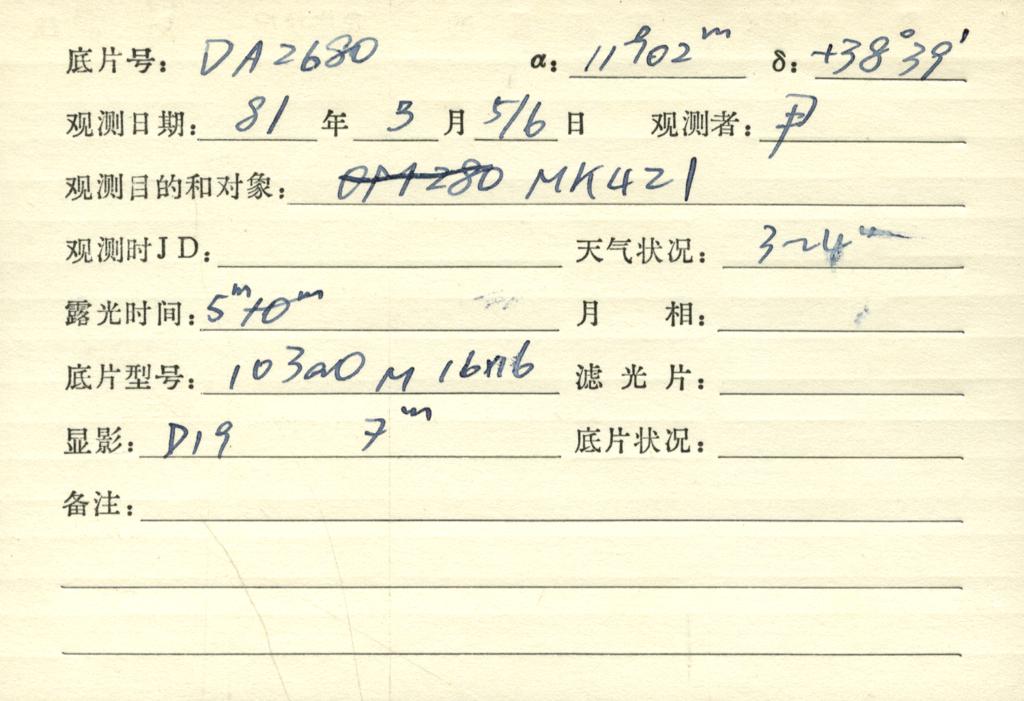 底片号: DA2680 α: 11h02m δ: +38°39′
观测日期: 81 年 3 月 5/6 日 观测者: 尹
观测目的和对象: MK421
观测时JD: 天气状况: 3~4m
露光时间: 5m 月 相:
底片型号: 103aO 滤光片:
显影: D19 7m 底片状况:
备注: